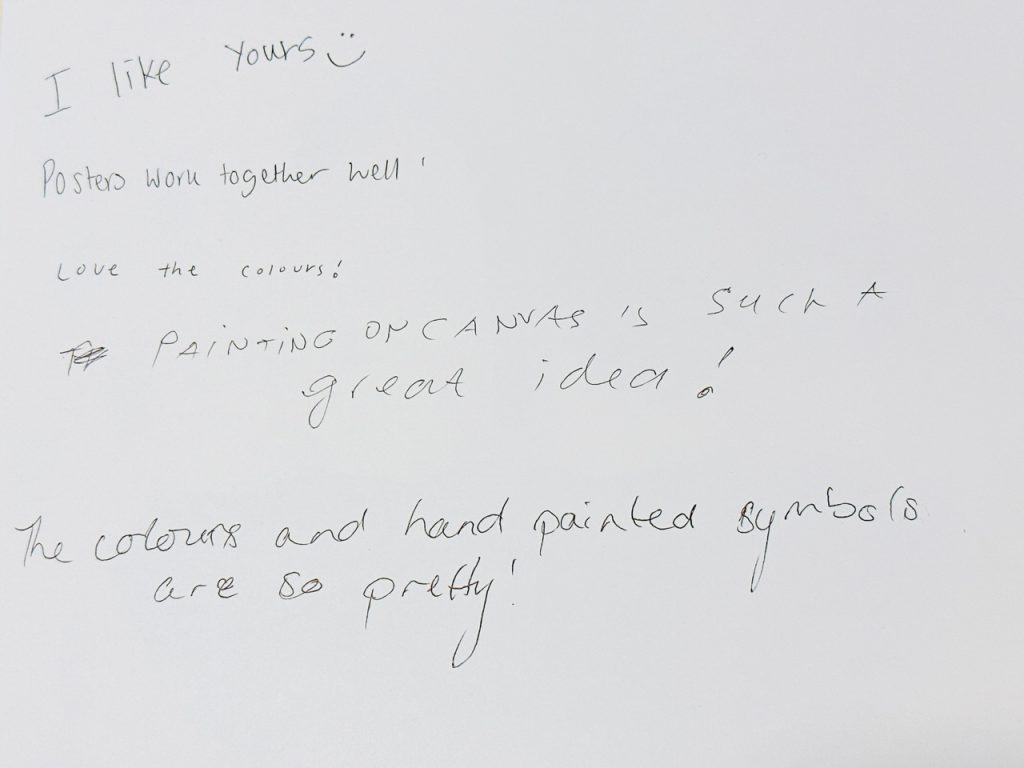 I like Yours :)
Posters work together well!
Love the colours!
PAINTING ON CANVAS is SUCH A
great idea!
The colours and hand painted symbols
are so pretty!